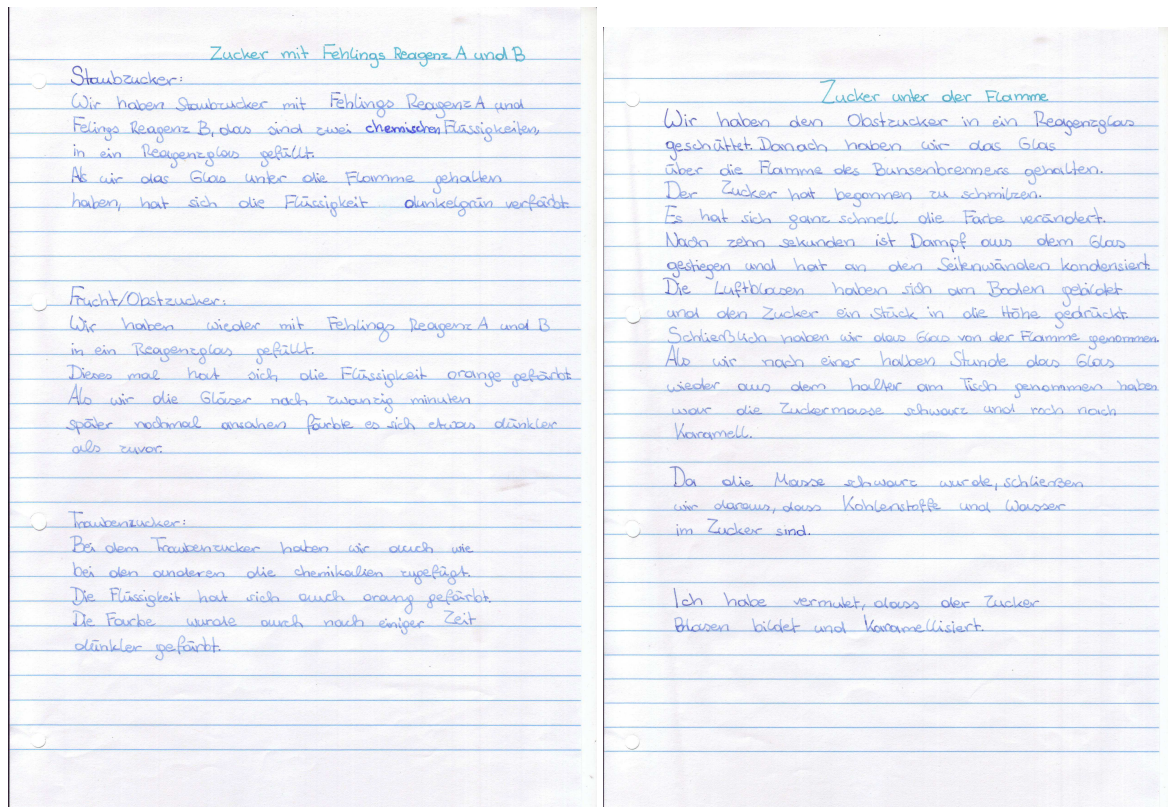 Zucker mit Fehlings Reagenz A und B
Staubzucker:
Wir haben Staubzucker mit Fehlings Reagenz A und
Felings Reagenz B, das sind zwei chemischen Flüssigkeiten,
in ein Reagenzglas gefüllt.
Als wir das Glas unter die Flamme gehalten
haben, hat sich die Flüssigkeit dunkelgrün verfärbt.
Frucht/Obstzucker:
Wir haben wieder mit Fehlings Reagenz A und B
in ein Reagenzglas gefüllt.
Dieses mal hat sich die Flüssigkeit orange gefärbt.
Als wir die Gläser nach zwanzig minuten
später nochmal ansahen färbte es sich etwas dünkler
als zuvor.
Traubenzucker:
Bei dem Traubenzucker haben wir auch wie
bei den anderen die chemikalien zugefügt.
Die Flüssigkeit hat sich auch orang gefärbt.
Die Farbe wurde auch nach einiger Zeit
dünkler gefärbt.
Zucker unter der Flamme
Wir haben den Obstzucker in ein Reagenzglas
geschüttet. Danach haben wir das Glas
über die Flamme des Bunsenbrenners gehalten.
Der Zucker hat begonnen zu schmilzen.
Es hat sich ganz schnell die Farbe verändert.
Nach zehn sekunden ist Dampf aus dem Glas
gestiegen und hat an den Seitenwänden kondensiert.
Die Luftblasen haben sich am Boden gebildet
und den Zucker ein Stück in die Höhe gedrückt.
Schließlich haben wir das Glas von der Flamme genommen.
Als wir nach einer halben Stunde das Glas
wieder aus dem halter am Tisch genommen haben
war die Zuckermasse schwarz und roch nach
Karamell.
Da die Masse schwarz wurde, schließen
wir daraus, dass Kohlenstoffe und Wasser
im Zucker sind.
Ich habe vermutet, dass der Zucker
Blasen bildet und Karamellisiert.